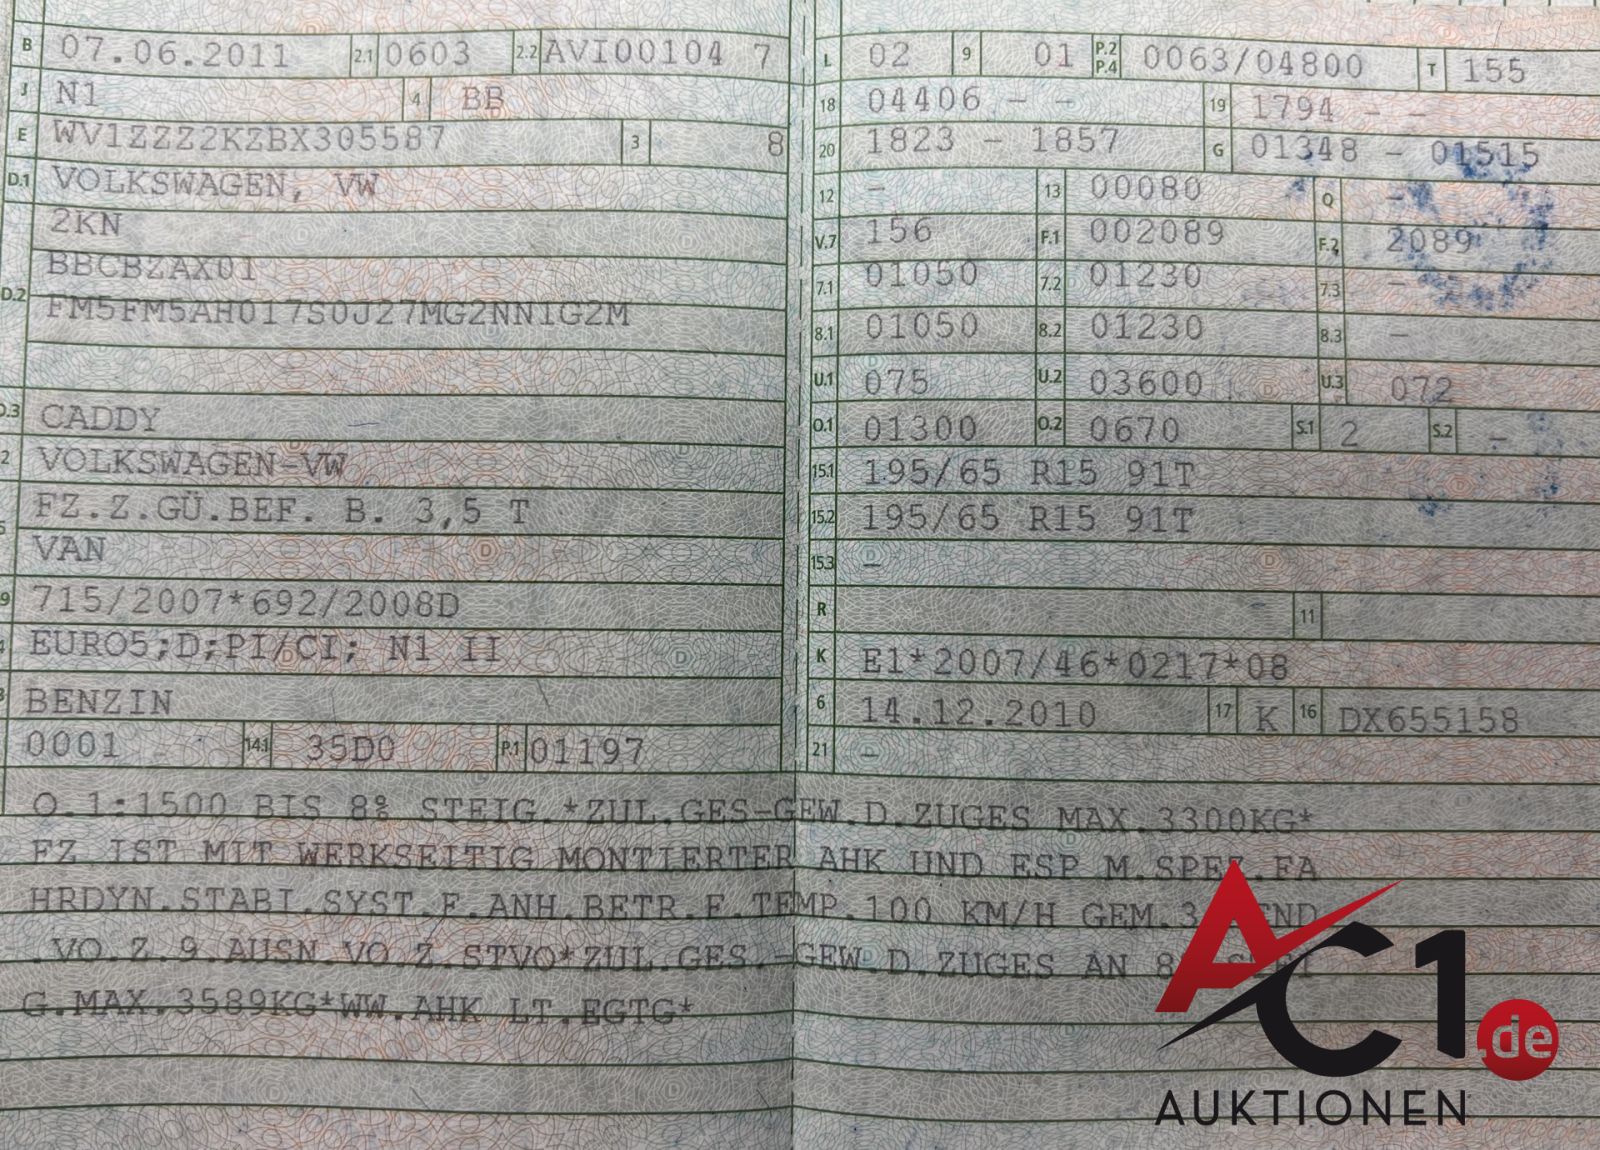 B 07.06.2011 2.1 0603 2.2 AVI00104 7
J N1 4 BB
E WV1ZZZ2KZBX305587 3 8
D.1 VOLKSWAGEN, VW
2KN
BBCBZAX01
D.2 FM5FM5AH017S0J27MG2NN1G2M
D.3 CADDY
2 VOLKSWAGEN-VW
5 FZ.Z.GÜ.BEF. B. 3,5 T
VAN
9 715/2007*692/2008D
EURO5;D;PI/CI; N1 II
3 BENZIN
0001 14.1 35D0 P.1 01197
L 02 9 01 P.2 P.4 0063/04800 T 155
18 04406 - - 19 1794 - -
20 1823 - 1857 G 01348 - 01515
12 - 13 00080 Q -
V.7 156 F.1 002089 F.2 2089
7.1 01050 7.2 01230 7.3 -
8.1 01050 8.2 01230 8.3 -
U.1 075 U.2 03600 U.3 072
O.1 01300 O.2 0670 S.1 2 S.2 -
15.1 195/65 R15 91T
15.2 195/65 R15 91T
15.3 -
R 11
K E1*2007/46*0217*08
6 14.12.2010 17 K 16 DX655158
21 -
O.1:1500 BIS 8% STEIG.*ZUL.GES-GEW.D.ZUGES MAX.3300KG*
FZ IST MIT WERKSEITIG MONTIERTER AHK UND ESP M.SPEZ.FA
HRDYN.STABI.SYST.F.ANH.BETR.F.TEMP.100 KM/H GEM.3
.VO.Z.9.AUSN.VO.Z.STVO*ZUL.GES.-GEW.D.ZUGES AN 8
G.MAX.3589KG*WW.AHK LT.EGTG*
AC1.de
AUKTIONEN